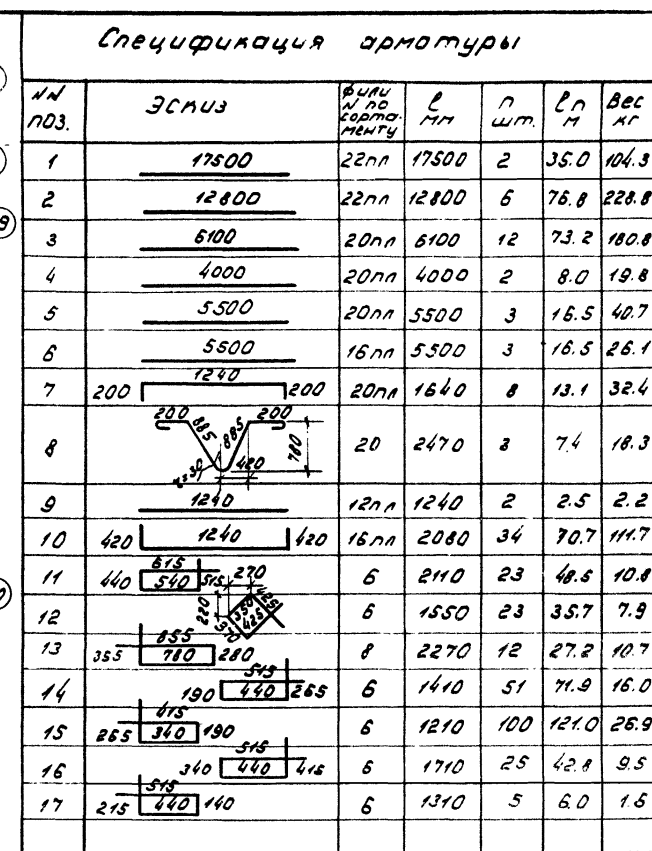 Спецификация арматуры
NN поз. Эскиз Ф или N по сорта-менту l мм n шт. ln м Вес кг
1 17500 22пл 17500 2 35.0 104.3
2 12800 22пл 12800 6 76.8 228.8
3 6100 20пл 6100 12 73.2 180.8
4 4000 20пл 4000 2 8.0 19.8
5 5500 20пл 5500 3 16.5 40.7
6 5500 16пл 5500 3 16.5 26.1
7 200 1240 200 20пл 1640 8 13.1 32.4
8 200 885 885 200 780 420 20 2470 3 7.4 18.3
9 1240 12пл 1240 2 2.5 2.2
10 420 1240 420 16пл 2080 34 70.7 111.7
11 440 615 540 515 6 2110 23 48.5 10.8
12 270 220 350 425 425 570 6 1550 23 35.7 7.9
13 355 855 780 280 8 2270 12 27.2 10.7
14 190 515 440 265 6 1410 51 71.9 16.0
15 265 415 340 190 6 1210 100 121.0 26.9
16 340 515 440 415 6 1710 25 42.8 9.5
17 215 515 440 140 6 1310 5 6.0 1.5